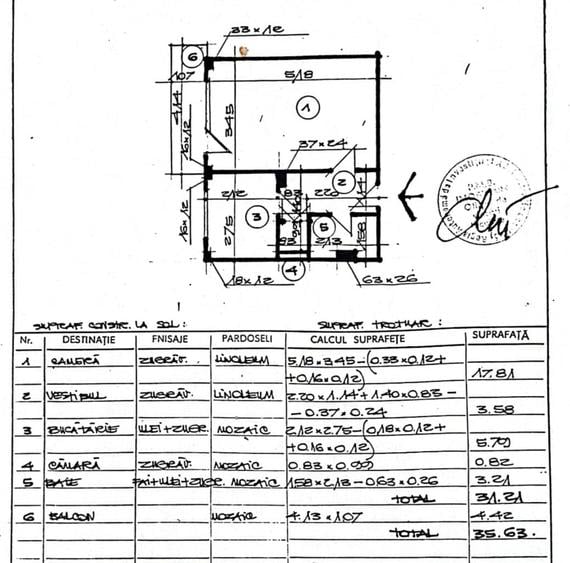 33×12
6
107
518
414
345
1
16×12
37×24
2
212
83
220
114
16×12
3
275
5
158
93
213
4
18×12
63×26
SUPRAF. CONSTR. LA SOL: SUPRAF. TROTUAR:
Nr. DESTINAȚIE FNISAJE PARDOSELI CALCUL SUPRAFEȚE SUPRAFAȚĂ
1 CAMERĂ ZUGRĂV. LINOLEUM 5,18×3,45-(0.33×0.12+
+0,16×0,12) 17.81
2 VESTIBUL ZUGRĂV. LINOLEUM 2.20×1.14+1.40×0.83-
-0.37×0.24 3.58
3 BUCĂTĂRIE ULEI+ZUGR. MOZAIC 2,12×2.75-(0,18×0,12+
+0,16×0,12) 5.79
4 CĂMARĂ ZUGRĂV. MOZAIC 0.83×0.99 0.82
5 BAIE FAI+ULEI+ZUGR. MOZAIC 1.58×2.13-0.63×0.26 3.21
TOTAL 31.21
6 BALCON MOZAIC 4.13×1.07 4.42
TOTAL 35.63.